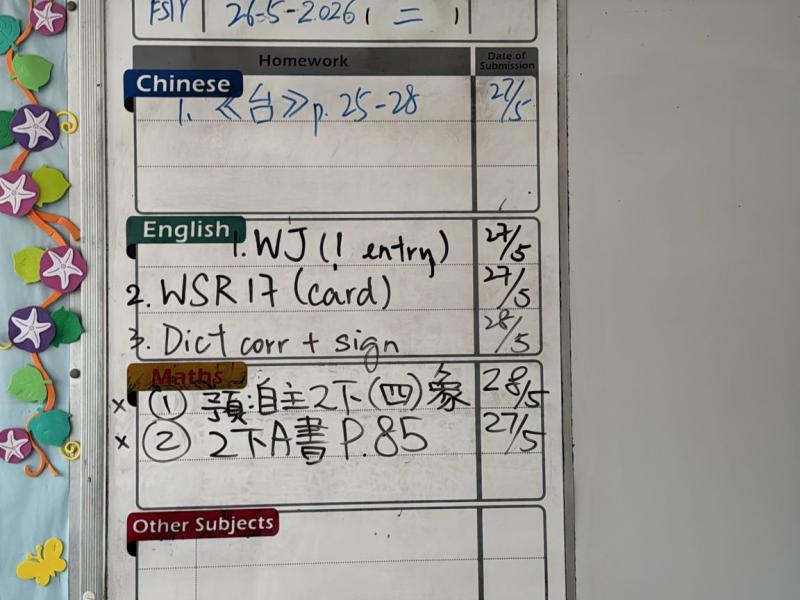 26-5-2026 ( 二 )
Homework Date of Submission
Chinese
1. 《台》p. 25-28 27/5
English
1. WJ (1 entry) 27/5
2. WSR 17 (card) 27/5
3. Dict corr + sign 28/5
Maths
x ① 預:自主2下(四)象 28/5
x ② 2下A書 P.85 27/5
Other Subjects